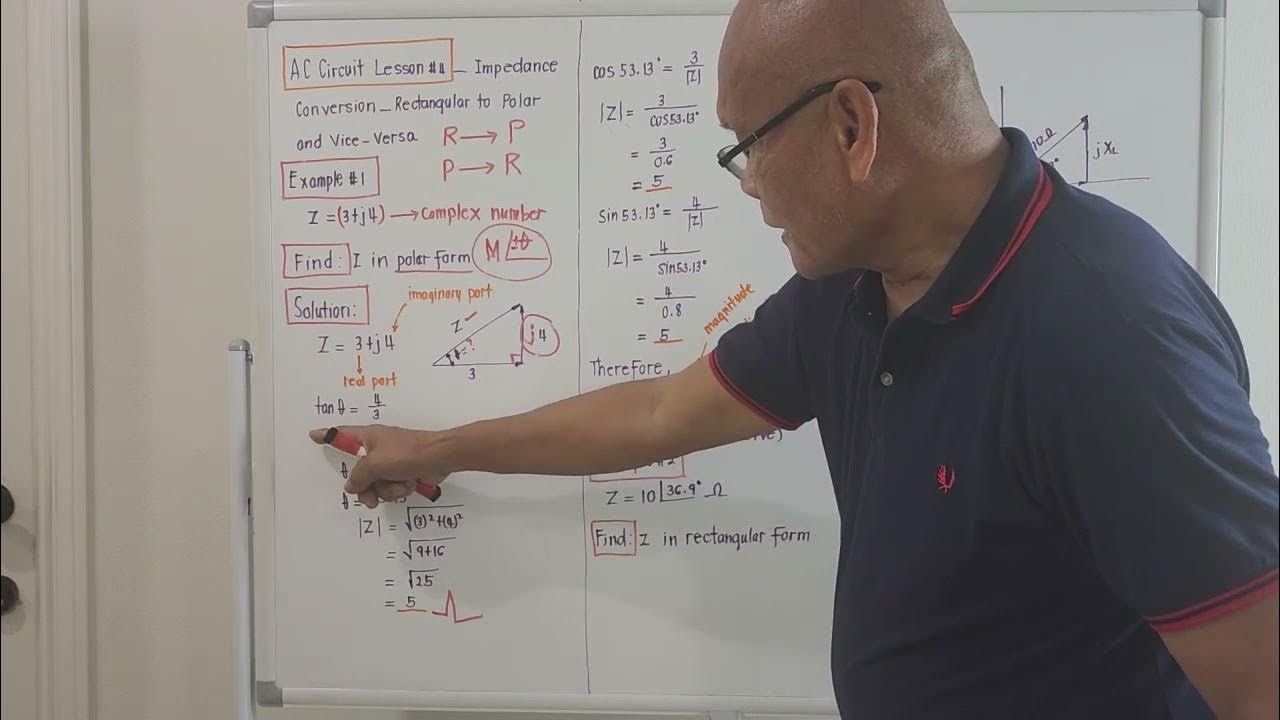 AC Circuit Lesson #4 _ Impedance
Conversion _ Rectangular to Polar
and Vice-Versa R → P
P → R
Example #1
Z = (3+j4) → Complex number
Find: Z in polar form M∠±θ
Solution:
imaginary part
Z = 3+j4
real part
Z ✓
θ=?
j4
3
tan θ = 4/3
θ
θ =
|Z| = √(3)²+(4)²
= √9+16
= √25
= 5
cos 53.13° = 3/|Z|
|Z| = 3/cos53.13°
= 3/0.6
= 5
Sin 53.13° = 4/|Z|
|Z| = 4/Sin53.13°
= 4/0.8
= 5
magnitude
Therefore,
Z = 10∠36.9° Ω
Find: Z in rectangular form
jXL